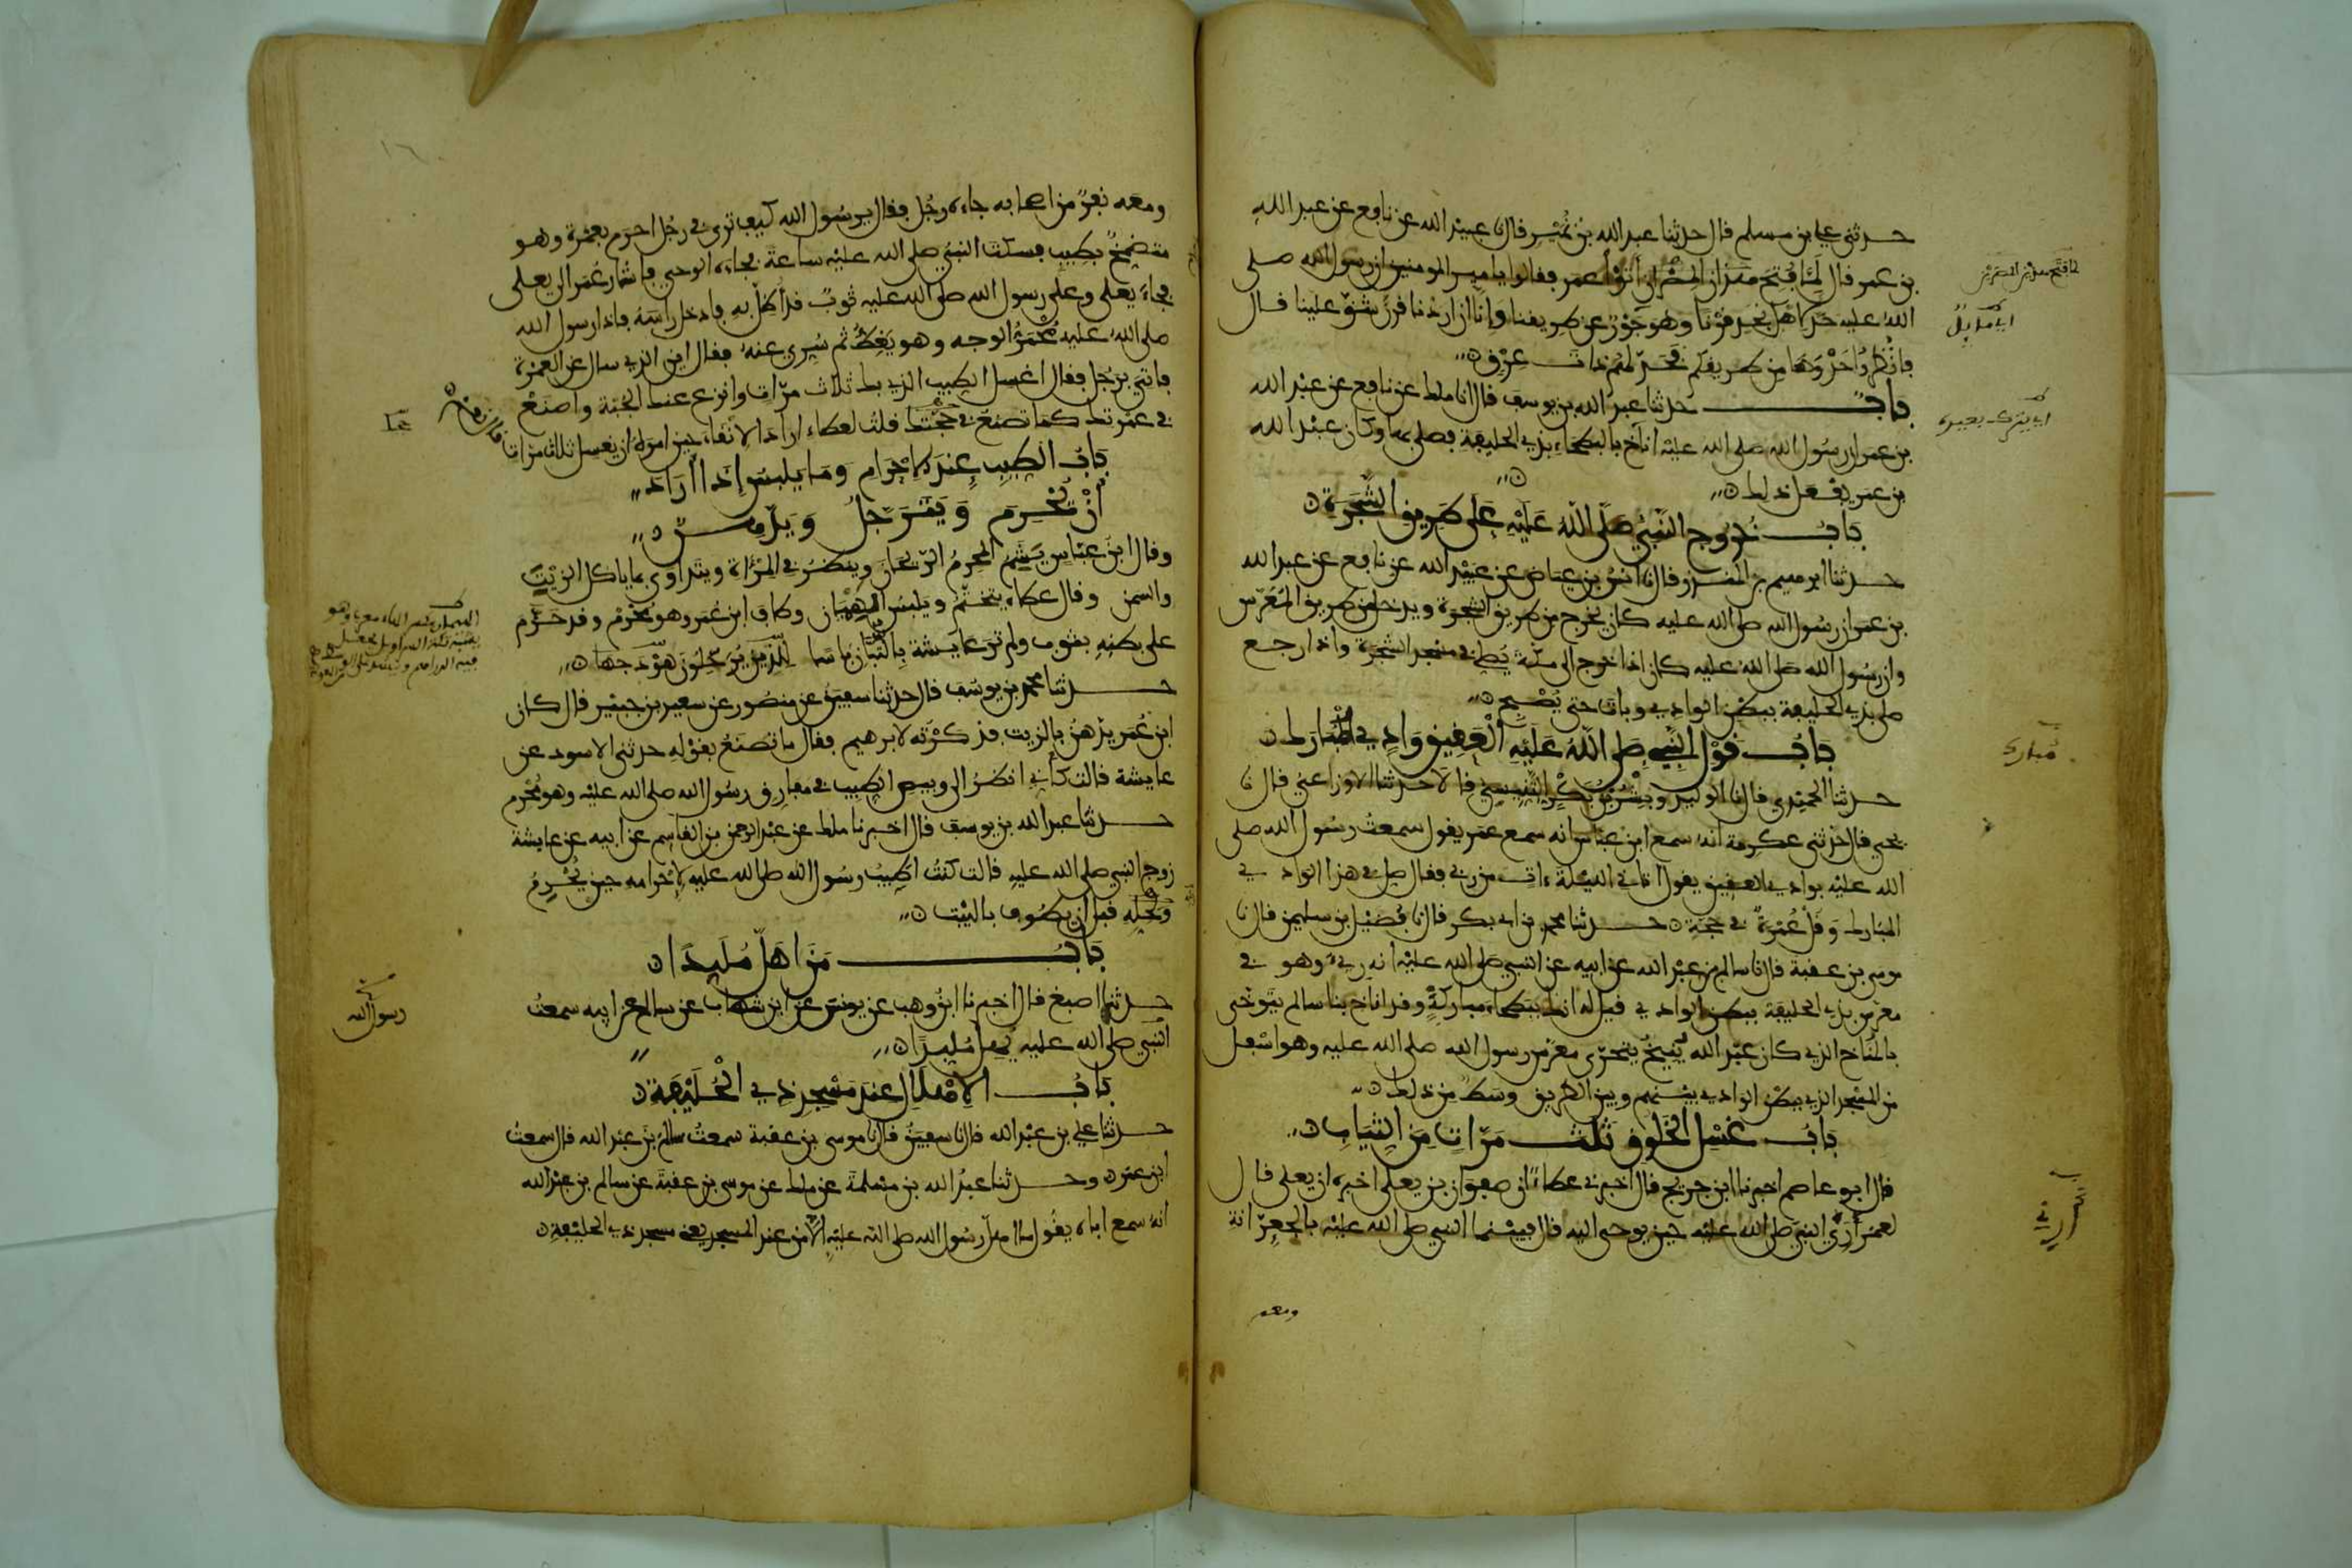 حدثني علي بن مسلم قال حدثنا عبد الله بن نمير قال نا عبيد الله عن نافع عن عبد الله
بن عمر قال لما فتح هذان المصران أتوا عمر فقالوا يا امير المومنين ان رسول الله صلى
الله عليه حد لاهل نجد قرنا وهو جور عن طريقنا وانا ان اردنا قرن شق علينا قال
فانظروا حذوها من طريقكم فحد لهم ذات عرق
باب حدثنا عبد الله بن يوسف قال انا ملك عن نافع عن عبد الله
بن عمر ان رسول الله صلى الله عليه اناخ بالبطحاء بذي الحليفة فصلى بها وكان عبد الله
بن عمر يفعل ذلك
باب خروج النبي صلى الله عليه على طريق الشجرة
حدثنا ابرهيم بن المنذر قال نا انس بن عياض عن عبيد الله عن نافع عن عبد الله
بن عمر ان رسول الله صلى الله عليه كان يخرج من طريق الشجرة ويدخل من طريق المعرس
وان رسول الله صلى الله عليه كان اذا خرج الى مكة يصلي في مسجد الشجرة واذا رجع
صلى بذي الحليفة ببطن الوادي وبات حتى يصبح
باب قول النبي صلى الله عليه العقيق وادي المبارك
حدثنا الحميدي قال نا الوليد وبشر بن بكر التنيسي قالا حدثنا الاوزاعي قال نا
يحيى قال حدثني عكرمة انه سمع ابن عباس انه سمع عمر يقول سمعت رسول الله صلى
الله عليه بوادي العقيق يقول اتاني الليلة ءات من ربي فقال صل في هذا الوادي
المبارك وقل عمرة في حجة حدثنا محمد بن ابي بكر قال نا فضيل بن سليمن قال نا
موسى بن عقبة قال نا سالم بن عبد الله عن ابيه عن النبي صلى الله عليه انه رءي وهو في
معرس بذي الحليفة ببطن الوادي قيل له انك ببطحاء مباركة وقد اناخ بنا سالم يتوخى
بالمناخ الذي كان عبد الله ينيخ يتحرى معرس رسول الله صلى الله عليه وهو اسفل
من المسجد الذي ببطن الوادي بينهم وبين الطريق وسط من ذلك
باب غسل الخلوق ثلث مرات من الثياب
قال ابو عاصم اخبرنا ابن جريج قال اخبرني عطاء ان صفوان بن يعلى اخبره ان يعلى قال
لعمر أرني النبي صلى الله عليه حين يوحى اليه قال فبينما النبي صلى الله عليه بالجعرانة
ومعه
اي مايل
اي يترك بعيره
مبارك
أرني
ومعه نفر من اصحابه جاءه رجل فقال يرسول الله كيف ترى في رجل احرم بعمرة وهو
متضمخ بطيب فسكت النبي صلى الله عليه ساعة فجاءه الوحي فاشار عمر الى يعلى
فجاء يعلى وعلى رسول الله صلى الله عليه ثوب قد اظل به فادخل راسه فاذا رسول الله
صلى الله عليه محمر الوجه وهو يغط ثم سري عنه فقال اين الذي سال عن العمرة
فاتي برجل فقال اغسل الطيب الذي بك ثلاث مرات وانزع عنك الجبة واصنع
في عمرتك كما تصنع في حجتك قلت لعطاء اراد الانقاء حين امره ان يغسل ثلاث مرات
قال نعم
باب الطيب عند الاحرام وما يلبس اذا أراد
أن يحرم ويترجل ويدهن
وقال ابن عباس يشم المحرم الريحان وينظر في المرءاة ويتداوى بما ياكل الزيت
والسمن وقال عطاء يتختم ويلبس الهميان وطاف ابن عمر وهو محرم وقد حزم
على بطنه بثوب ولم تر عايشة بالتبان باسا للذين يرحلون هودجها
حدثنا محمد بن يوسف قال حدثنا سفين عن منصور عن سعيد بن جبير قال كان
ابن عمر يدهن بالزيت فذكرته لابرهيم فقال ما تصنع بقوله حدثني الاسود عن
عايشة قالت كأني انظر الى وبيص الطيب في مفارق رسول الله صلى الله عليه وهو محرم
حدثنا عبد الله بن يوسف قال اخبرنا ملك عن عبد الرحمن بن القاسم عن ابيه عن عايشة
زوج النبي صلى الله عليه قالت كنت اطيب رسول الله صلى الله عليه لاحرامه حين يحرم
ولحله قبل ان يطوف بالبيت
باب من اهل ملبدا
حدثنا اصبغ قال اخبرنا ابن وهب عن يونس عن ابن شهاب عن سالم عن ابيه سمعت
النبي صلى الله عليه يهل ملبدا
باب الاهلال عند مسجد ذي الحليفة
حدثنا علي بن عبد الله قال نا سفين قال نا موسى بن عقبة سمعت سالم بن عبد الله قال سمعت
ابن عمر وحدثنا عبد الله بن مسلمة عن ملك عن موسى بن عقبة عن سالم بن عبد الله
انه سمع اباه يقول ما اهل رسول الله صلى الله عليه الا من عند المسجد يعني مسجد ذي الحليفة
رسول الله